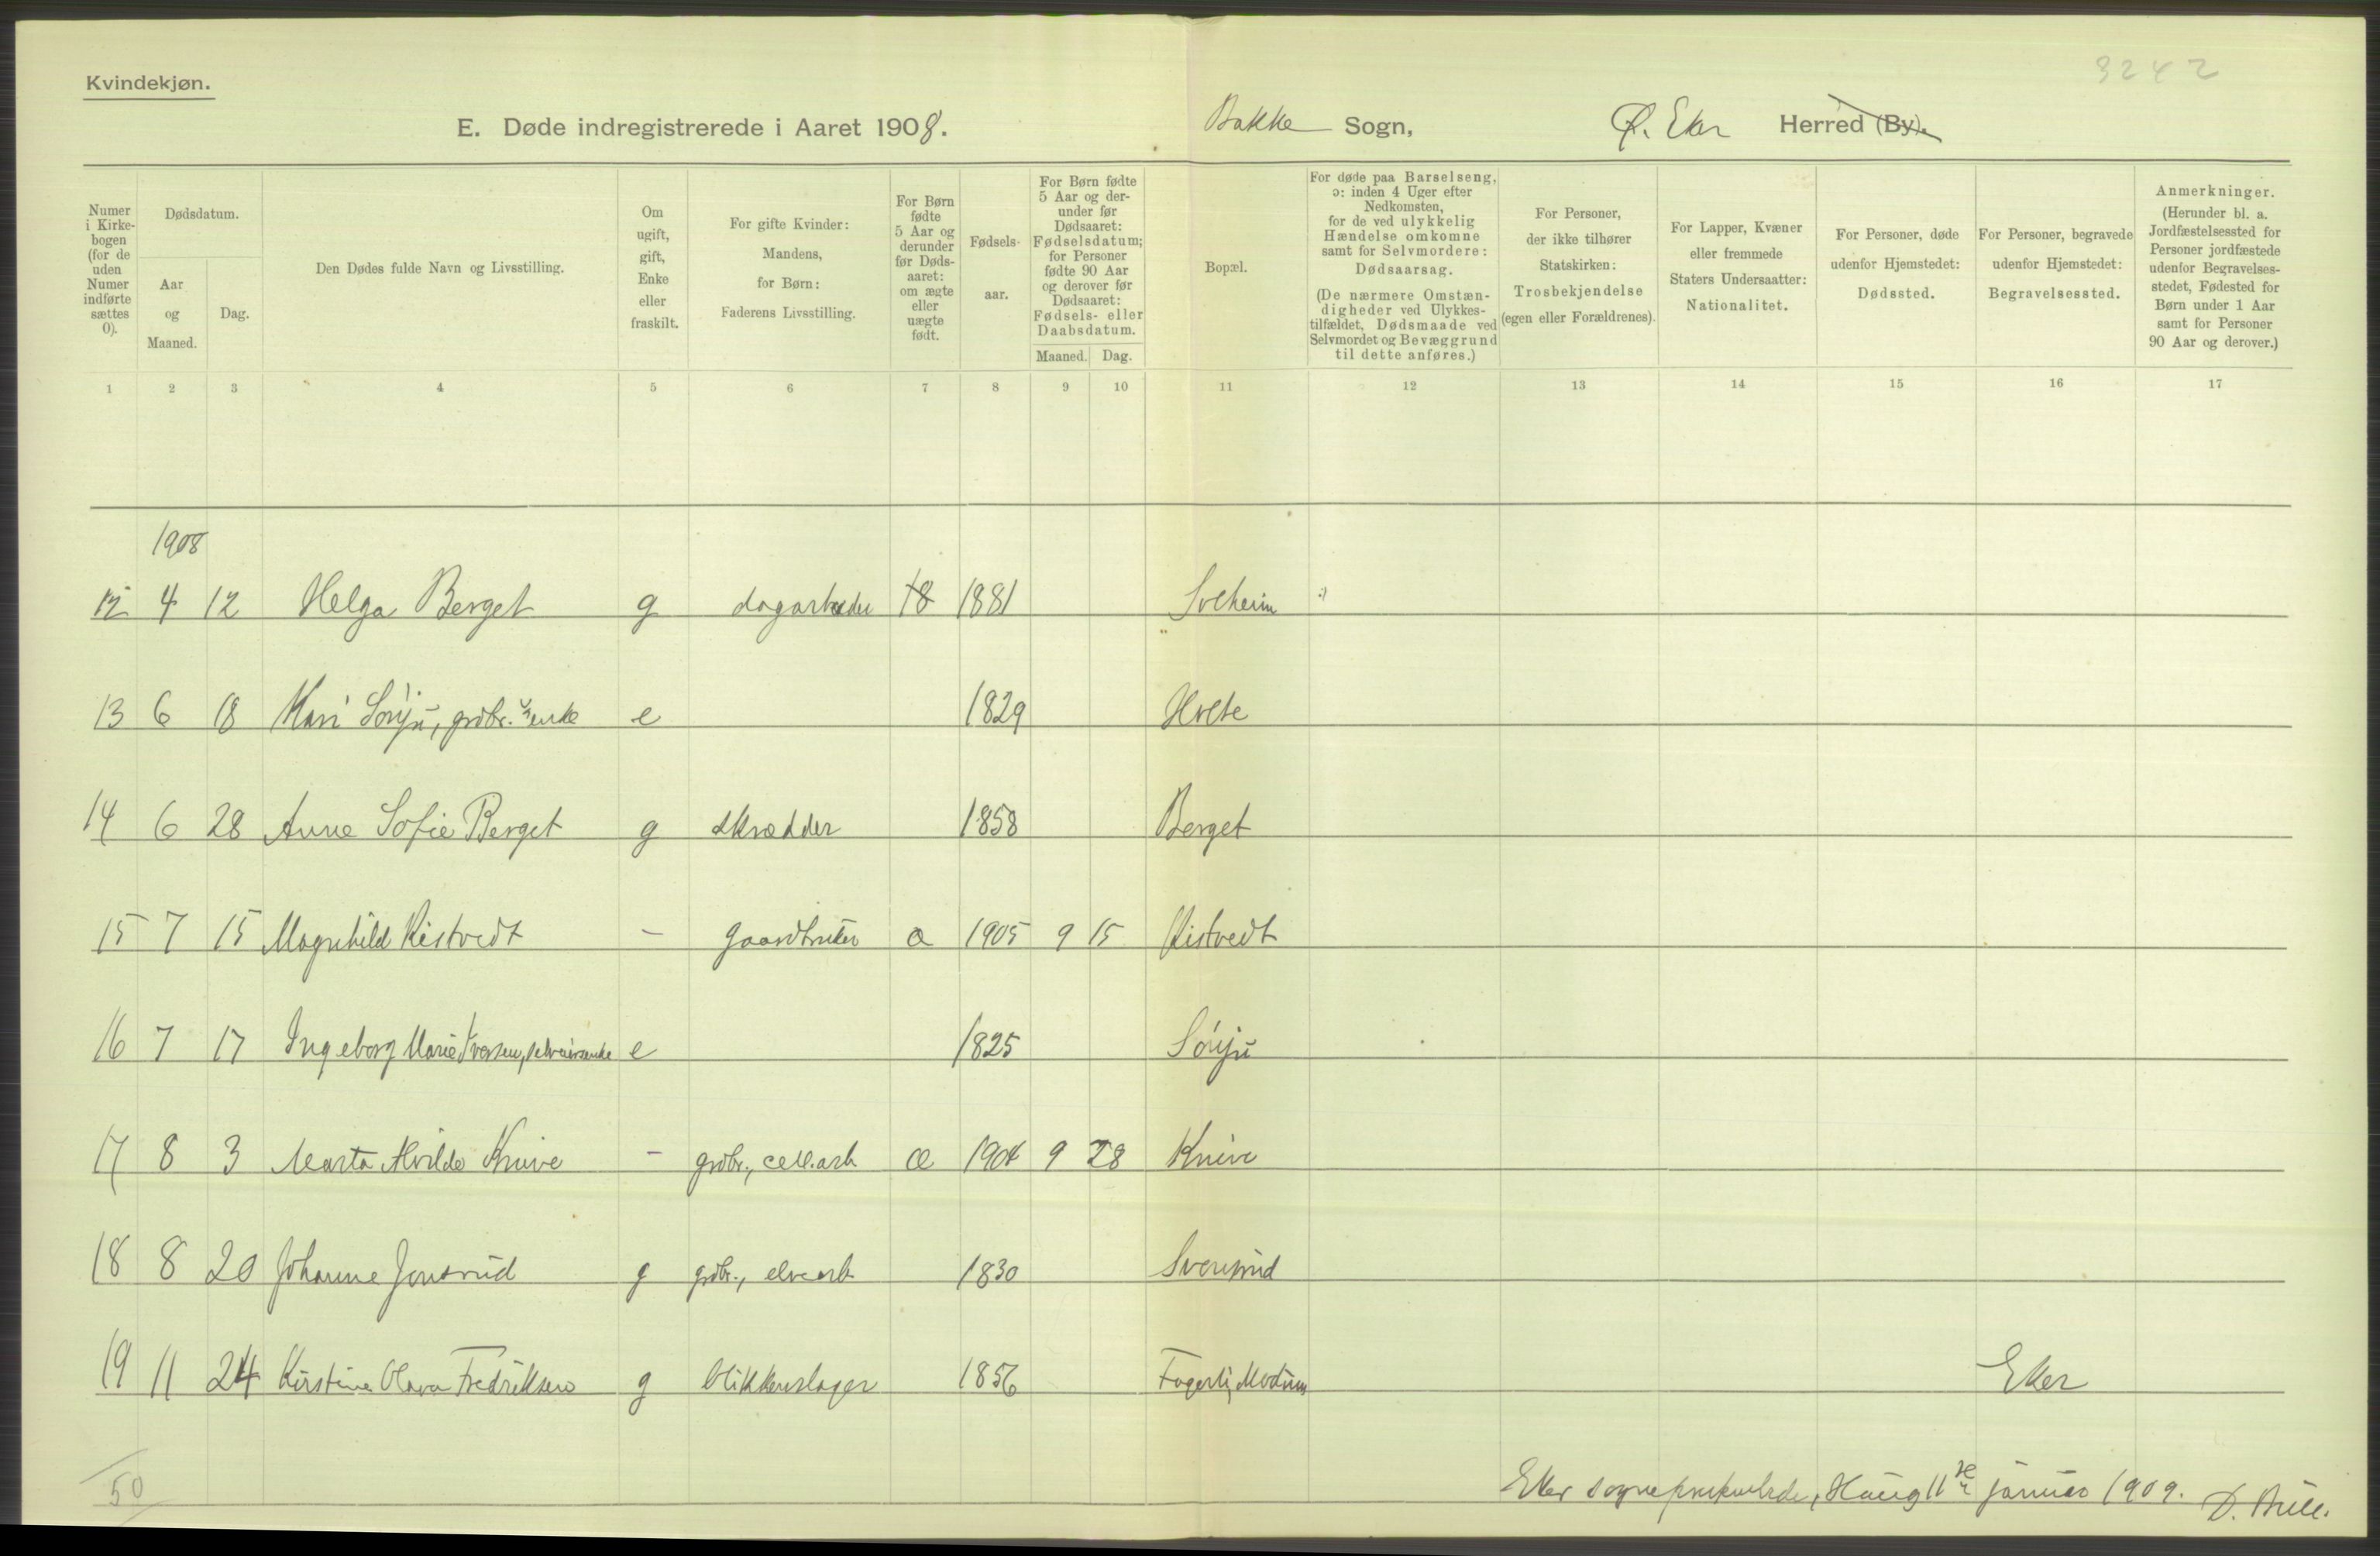 3242
Kvindekjøn.
E. Døde indregistrerede i Aaret 1908. Bakke Sogn, Ø. Eker Herred (By).
Numer i Kirke- bogen (for de uden Numer indførte sættes 0).
Dødsdatum.
Aar og Maaned.
Dag.
Den Dødes fulde Navn og Livsstilling.
Om ugift, gift, Enke eller fraskilt.
For gifte Kvinder: Mandens, for Børn: Faderens Livsstilling.
For Børn fødte 5 Aar og derunder før Døds- aaret: om ægte eller uægte født.
Fødsels- aar.
For Børn fødte 5 Aar og der- under før Dødsaaret: Fødselsdatum; for Personer fødte 90 Aar og derover før Dødsaaret: Fødsels- eller Daabsdatum.
Maaned. Dag.
Bopæl.
For døde paa Barselseng, ɔ: inden 4 Uger efter Nedkomsten, for de ved ulykkelig Hændelse omkomne samt for Selvmordere: Dødsaarsag. (De nærmere Omstæn- digheder ved Ulykkes- tilfældet, Dødsmaade ved Selvmordet og Bevæggrund til dette anføres.)
For Personer, der ikke tilhører Statskirken: Trosbekjendelse (egen eller Forældrenes).
For Lapper, Kvæner eller fremmede Staters Undersaatter: Nationalitet.
For Personer, døde udenfor Hjemstedet: Dødssted.
For Personer, begravede udenfor Hjemstedet: Begravelsessted.
Anmerkninger. (Herunder bl. a. Jordfæstelsessted for Personer jordfæstede udenfor Begravelses- stedet, Fødested for Børn under 1 Aar samt for Personer 90 Aar og derover.)
1 2 3 4 5 6 7 8 9 10 11 12 13 14 15 16 17
1908
12 4 12 Helga Berget g dagarbeider 18 1881 Solheim
13 6 18 Kari Sønju, grdbr. enke e 1829 Hvete
14 6 28 Anne Sofie Berget g skrædder 1858 Berget
15 7 15 Magnhild Kistvedt - gaardbruker æ 1905 9 15 Kistvedt
16 7 17 Ingeborg Marie Iversen, selveierenke e 1825 Sønju
17 8 3 Marta Alvilde Knive - grdbr., cell.arb æ 1904 9 28 Knive
18 8 20 Johanne Jonsrud g grdbr., elvearb 1830 Sversrud
19 11 24 Kirstine Olava Fredriksen g blikkenslager 1856 Fagerli, Modum Eker
50
Eker sogneprestembede, Haug 11 januar 1909. D. Bull.